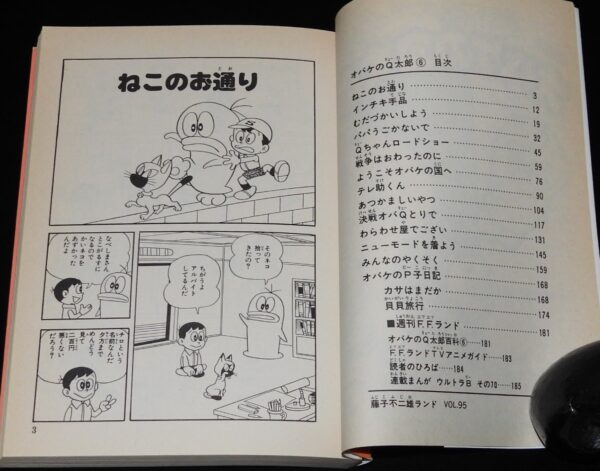 ねこのお通り
そのネコ
拾って
きたの？
ちがうよ
アルバイト
してるんだ
なべしまさん
とこがるすに
なるので
かいネコを
あずかった
んだよ
チロという
名前なんだ
夕方まで
見て
めんどう
二百円
悪くない
だろう？
3
オバケのQ太郎⑥ 目次
ねこのお通り 3
インチキ手品 12
むだづかいしよう 19
パパうごかないで 32
Qちゃんロードショー 45
戦争はおわったのに 59
ようこそオバケの国へ 76
テレ助くん 90
あつかましいやつ 104
決戦オバQとりで 117
わらわせ屋でござい 131
ニューモードを着よう 145
みんなのやくそく 159
オバケのP子日記 168
カサはまだか 168
貝貝旅行 174
■週刊F.F.ランド 181
オバケのQ太郎百科⑥ 181
F.F.ランドTVアニメガイド 183
読者のひろば 184
連載まんが ウルトラB その70 185
藤子不二雄ランド VOL.95